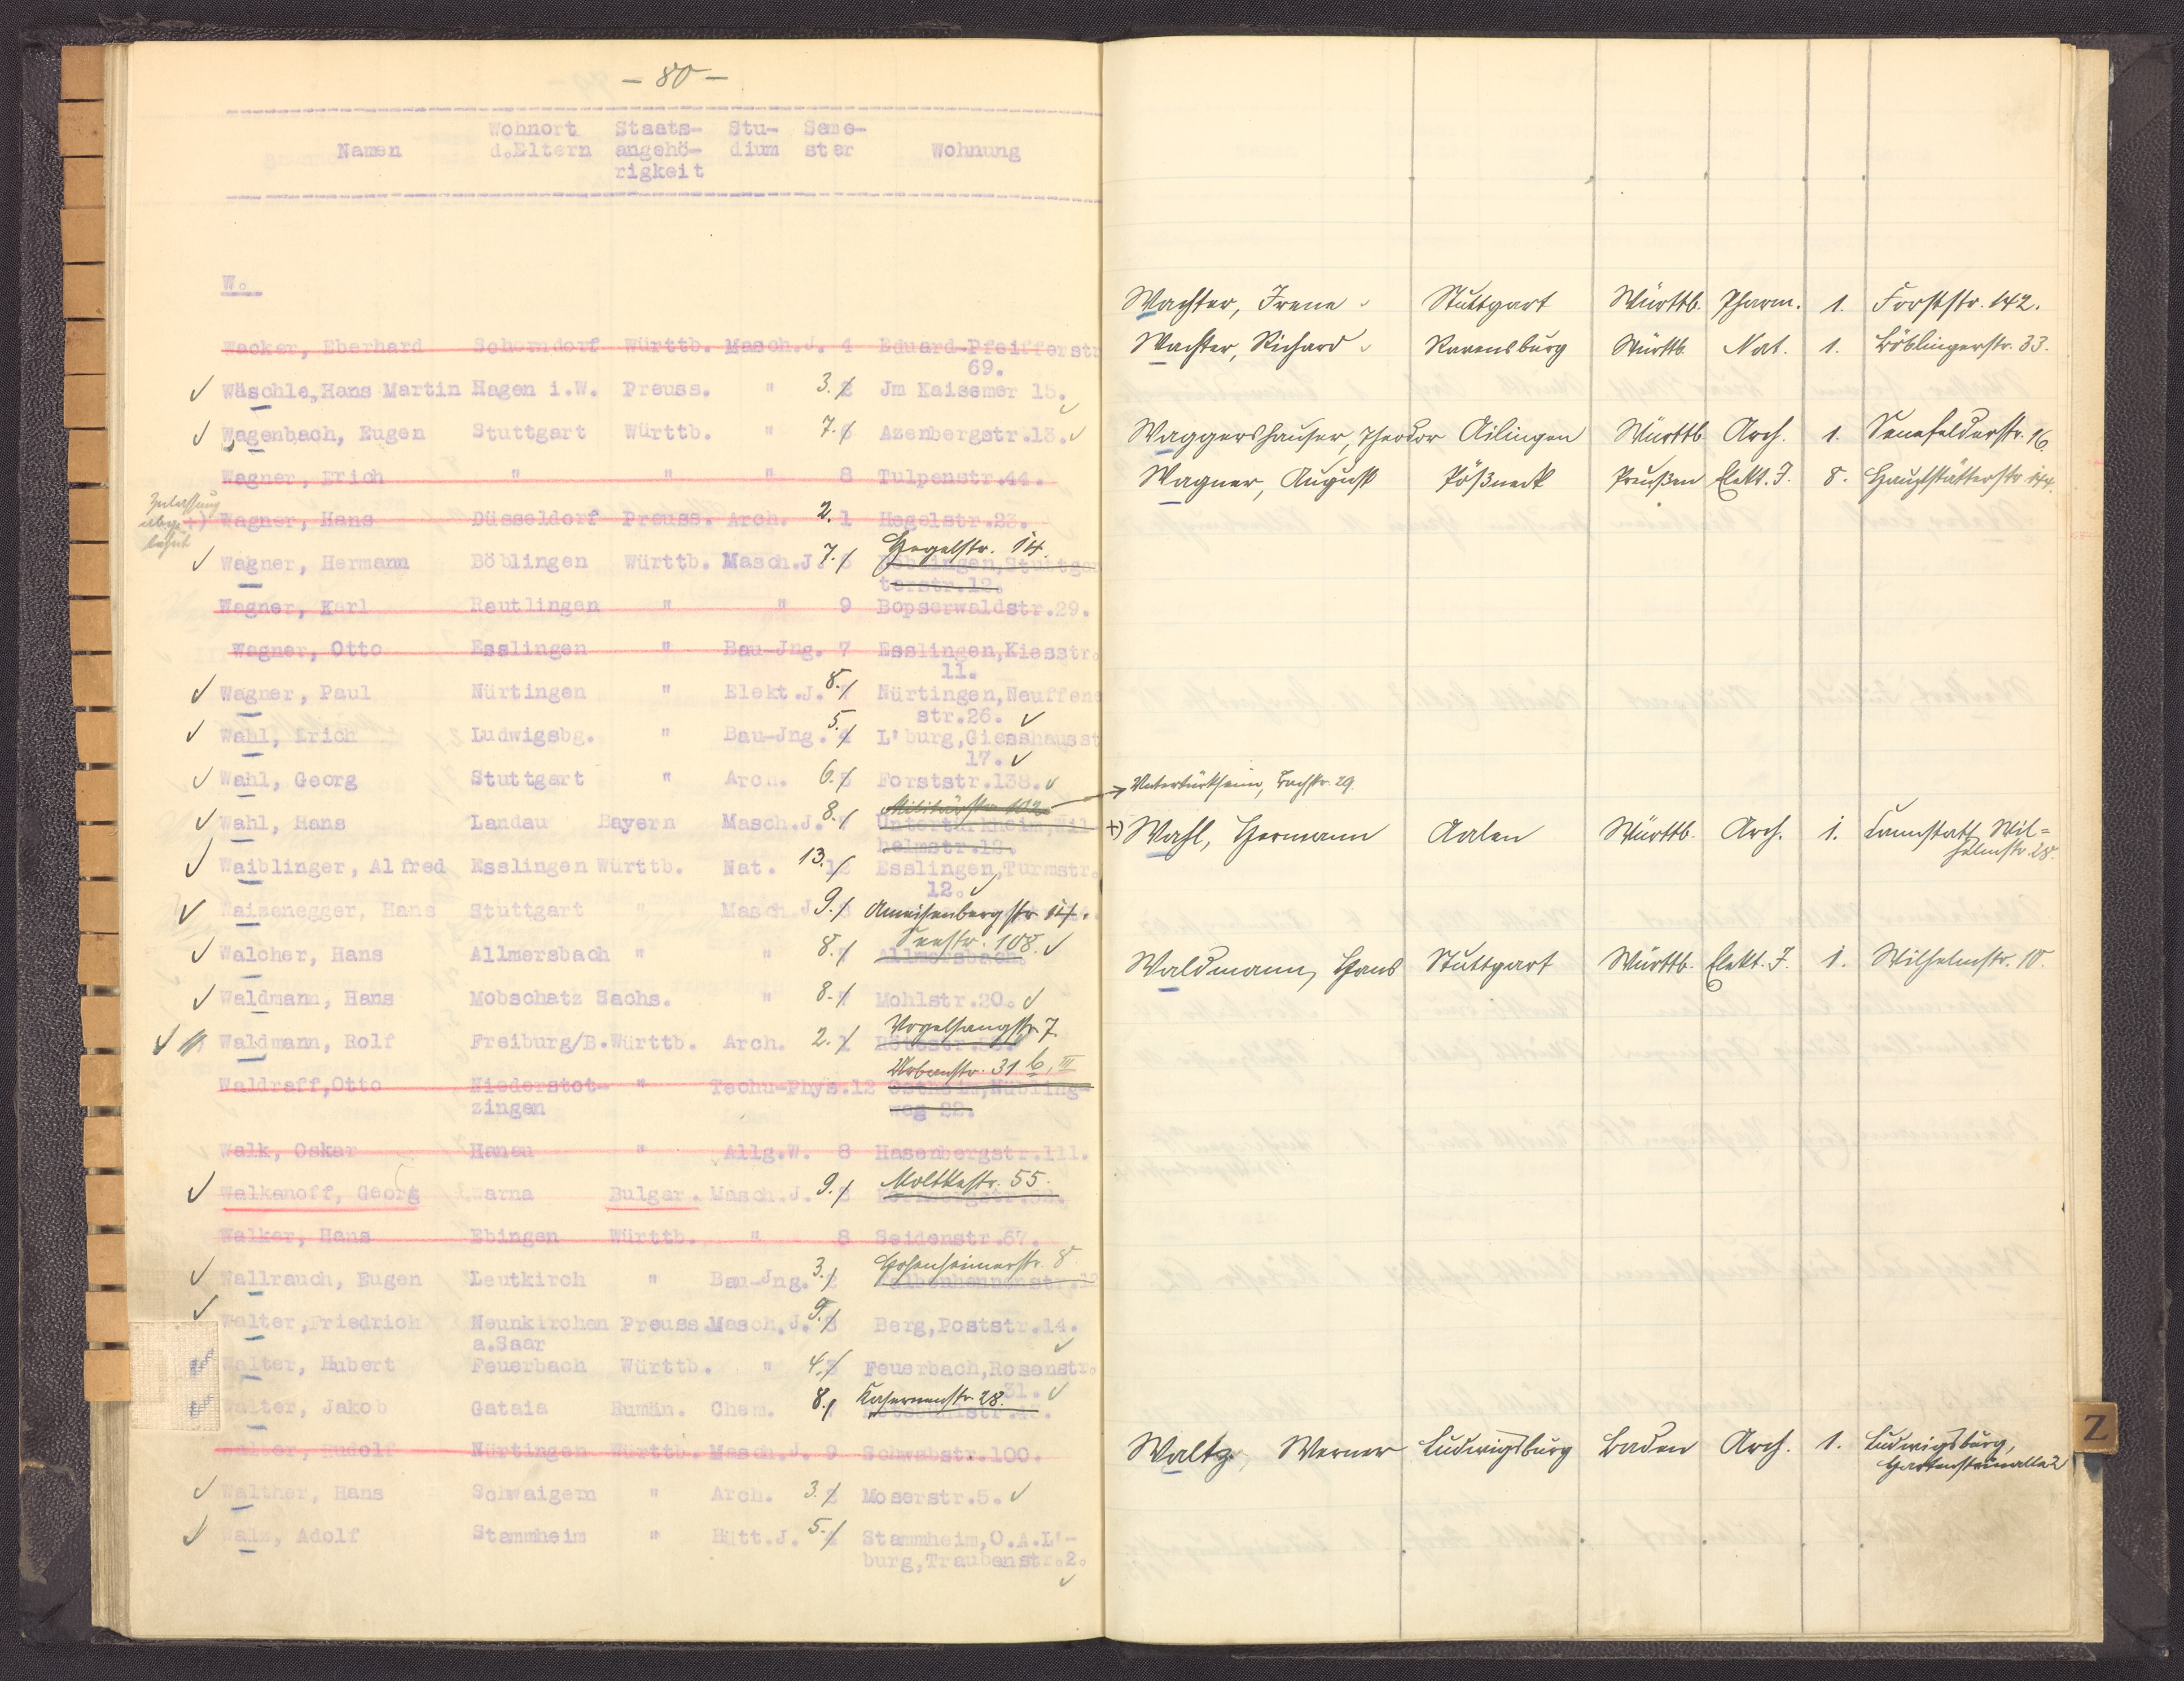 - 80 -
Namen Wohnort d.Eltern Staats-angehö-rigkeit Stu-dium Seme-ster Wohnung
W.
Wacker, Eberhard Schorndorf Württb. Masch.J. 4 Eduard-Pfeifferstr
69.
✓ Wäschle, Hans Martin Hagen i.W. Preuss. " 3. 2 Jm Kaisemer 15. ✓
✓ Wagenbach, Eugen Stuttgart Württb. " 7. 6 Azenbergstr.13. ✓
Wagner, Erich " " " 8 Tulpenstr.44.
Zulassung
abge-
lehnt
+) Wagner, Hans Düsseldorf Preuss. Arch. 2. 1 Hegelstr.23.
Hegelstr. 14.
✓ Wagner, Hermann Böblingen Württb. Masch.J. 7. Böblingen,Stuttgar
terstr.12.
Wagner, Karl Reutlingen " " 9 Bopserwaldstr.29.
Wagner, Otto Esslingen " Bau-Jng. 7 Esslingen,Kiesstr.
11.
✓ Wagner, Paul Nürtingen " Elekt.J. 8. 7 Nürtingen,Neuffens
str.26. ✓
✓ Wahl, Erich Ludwigsbg. " Bau-Jng. 5. 4 L'burg,Giesshausst
17. ✓
✓ Wahl, Georg Stuttgart " Arch. 6. 5 Forststr.138. ✓
Militärstr. 102
✓ Wahl, Hans Landau Bayern Masch.J. 8. 7 Untertürkheim,Wil
helmstr.12.
✓ Waiblinger, Alfred Esslingen Württb. Nat. 13. 12 Esslingen,Turmstr.
12. ✓
✓ Waizenegger, Hans Stuttgart " Masch.J. 9. 8 Ameisenbergstr. 14.
Seestr. 108. ✓
✓ Walcher, Hans Allmersbach " " 8. 7 Allmersbach.
✓ Waldmann, Hans Mobschatz Sachs. " 8. 7 Mohlstr.20. ✓
Vogelsangstr. 7.
✓ Waldmann, Rolf Freiburg/B. Württb. Arch. 2. 1
Urbanstr. 31 b, III
Waldraff,Otto Niederstot- " Techn-Phys. 12 Ostheim,Nübling-
zingen weg 22.
Walk, Oskar Hanau " Allg.W. 8 Hasenbergstr.111.
Moltkestr. 55.
✓ Walkanoff, Georg Warna Bulgar. Masch.J. 9. 8
Walker, Hans Ebingen Württb. " 8 Seidenstr.67.
Hohenheimerstr. 8.
✓ Wallrauch, Eugen Leutkirch " Bau-Jng. 3. 2
✓ Walter,Friedrich Neunkirchen Preuss. Masch.J. 9. 8 Berg,Poststr.14. ✓
a.Saar
Walter, Hubert Feuerbach Württb. " 4. 3 Feuerbach,Rosenstr.
31. ✓
Kasernenstr. 28.
Walter, Jakob Gataia Rumän. Chem. 8. 7
Walter, Rudolf Nürtingen Württb. Masch.J. 9 Schwabstr.100.
✓ Walther, Hans Schwaigern " Arch. 3. 2 Moserstr.5. ✓
✓ Walz, Adolf Stammheim " Hütt.J. 5. 4 Stammheim,O.A.L'-
burg,Traubenstr.2. ✓
Wachter, Irene Stuttgart Württb. Pharm. 1. Forststr. 142.
Wachter, Richard Ravensburg Württb. Nat. 1. Böblingerstr. 33.
Waggershauser, Theodor Ailingen Württb. Arch. 1. Senefelderstr. 16
Wagner, August Pößneck Preußen Elekt. J. 8. Hauptstätterstr. 144.
→ Untertürkheim, Bachstr. 29.
+) Wahl, Hermann Aalen Württb. Arch. 1. Cannstatt, Wil=
helmstr. 28.
Waldmann, Hans Stuttgart Württb. Elekt. J. 1. Wilhelmstr. 10.
Waltz, Werner Ludwigsburg Baden Arch. 1. Ludwigsburg,
Z